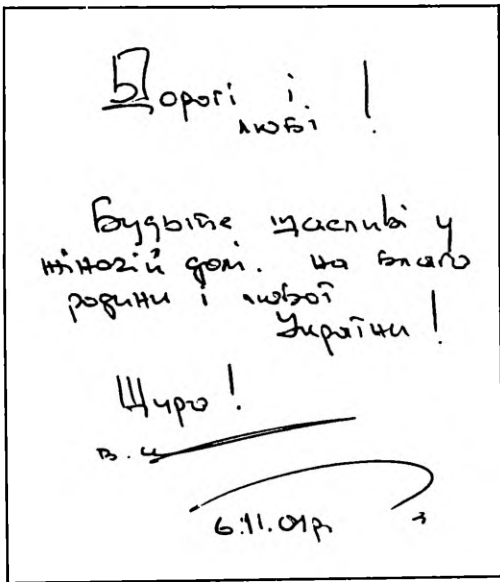 Дорогі і
любі !
Будьте щасливі у
жіночій долі. на благо
родини і любої
України !
Щиро !
В. Ц
6.11.01р.